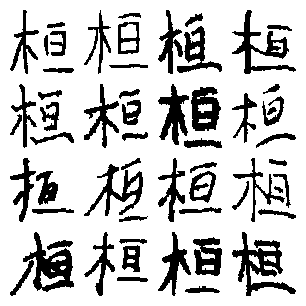 桓桓桓桓
桓桓桓桓
桓桓桓桓
桓桓桓桓